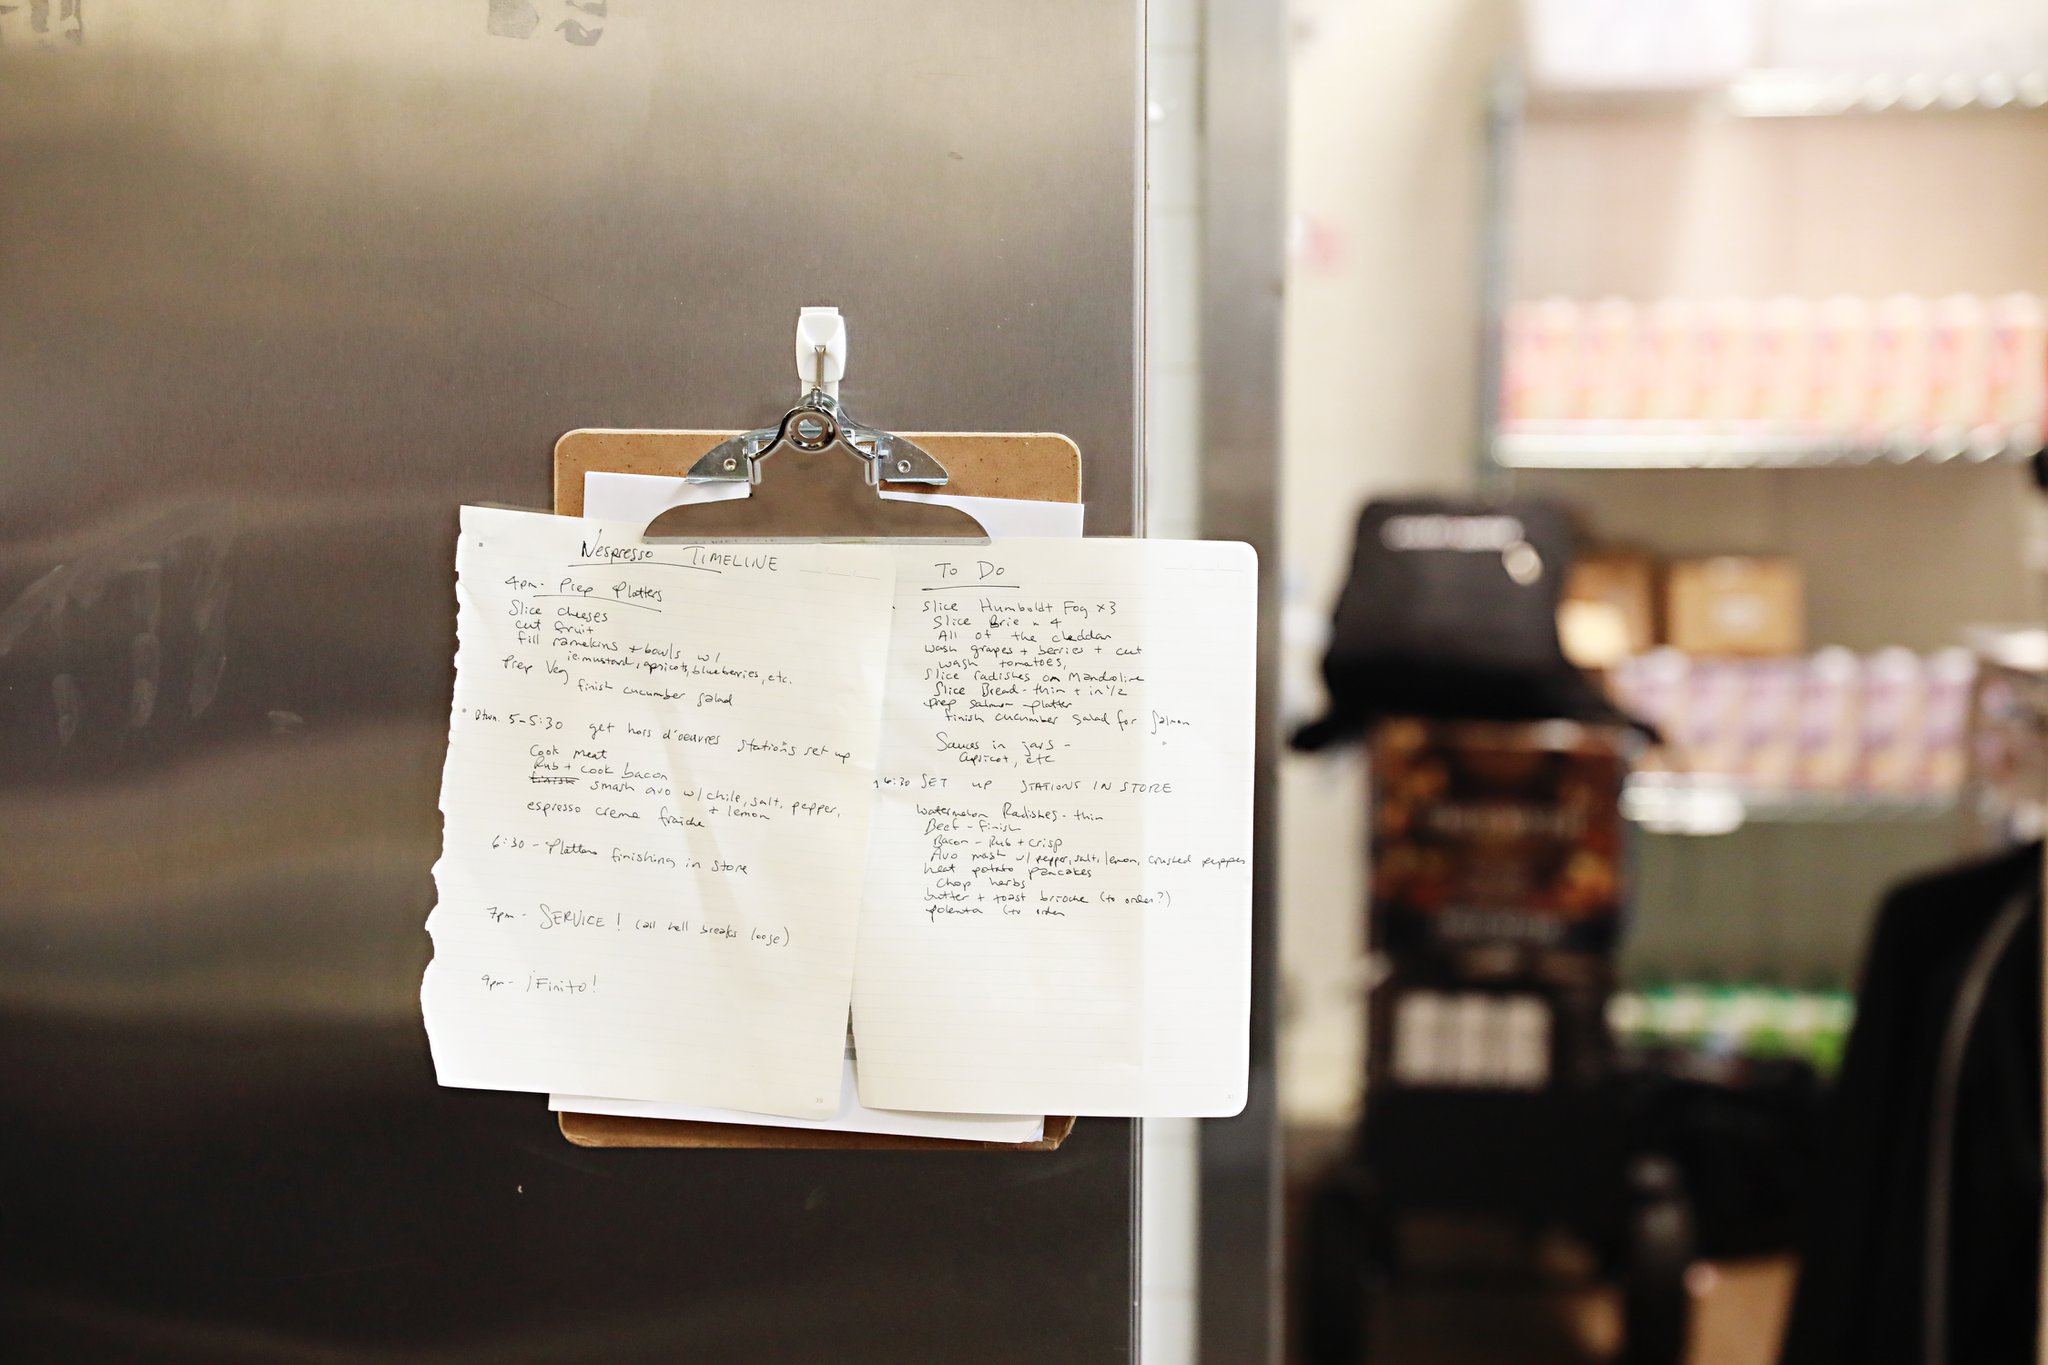 Nespresso TIMELINE
4pm - Prep Platters
Slice cheeses
cut fruit
fill ramekins + bowls w/
ie: mustard, apricots, blueberries, etc.
Prep Veg
finish cucumber salad
Btwn. 5-5:30 get hors d'oeuvres stations set up
Cook meat
Rub + cook bacon
finish smash avo w/ chile, salt, pepper,
+ lemon
espresso creme fraiche
6:30 - Platters finishing in store
7pm - SERVICE! (all hell breaks loose)
9pm - ¡Finito!
39
To Do
Slice Humboldt Fog x3
Slice Brie x 4
All of the cheddar
wash grapes + berries + cut
wash tomatoes,
Slice radishes on Mandoline
Slice Bread - thin + in 1/2
prep salmon platter
finish cucumber salad for salmon
Sauces in jars -
apricot, etc
6:30 SET UP STATIONS IN STORE
Watermelon Radishes - thin
Beef - Finish
Bacon - Rub + crisp
Avo mash w/ pepper, salt, lemon, crushed pepper
heat potato pancakes
Chop herbs
butter + toast brioche (to order?)
polenta (to order